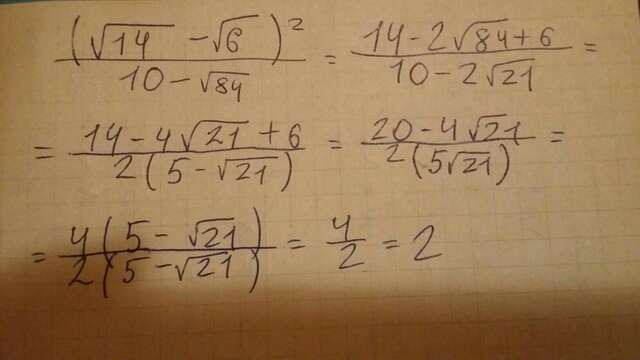 (√14 - √6)² / (10 - √84) = (14 - 2√84 + 6) / (10 - 2√21) =
= (14 - 4√21 + 6) / (2(5 - √21)) = (20 - 4√21) / (2(5√21)) =
= (4(5 - √21)) / (2(5 - √21)) = 4/2 = 2